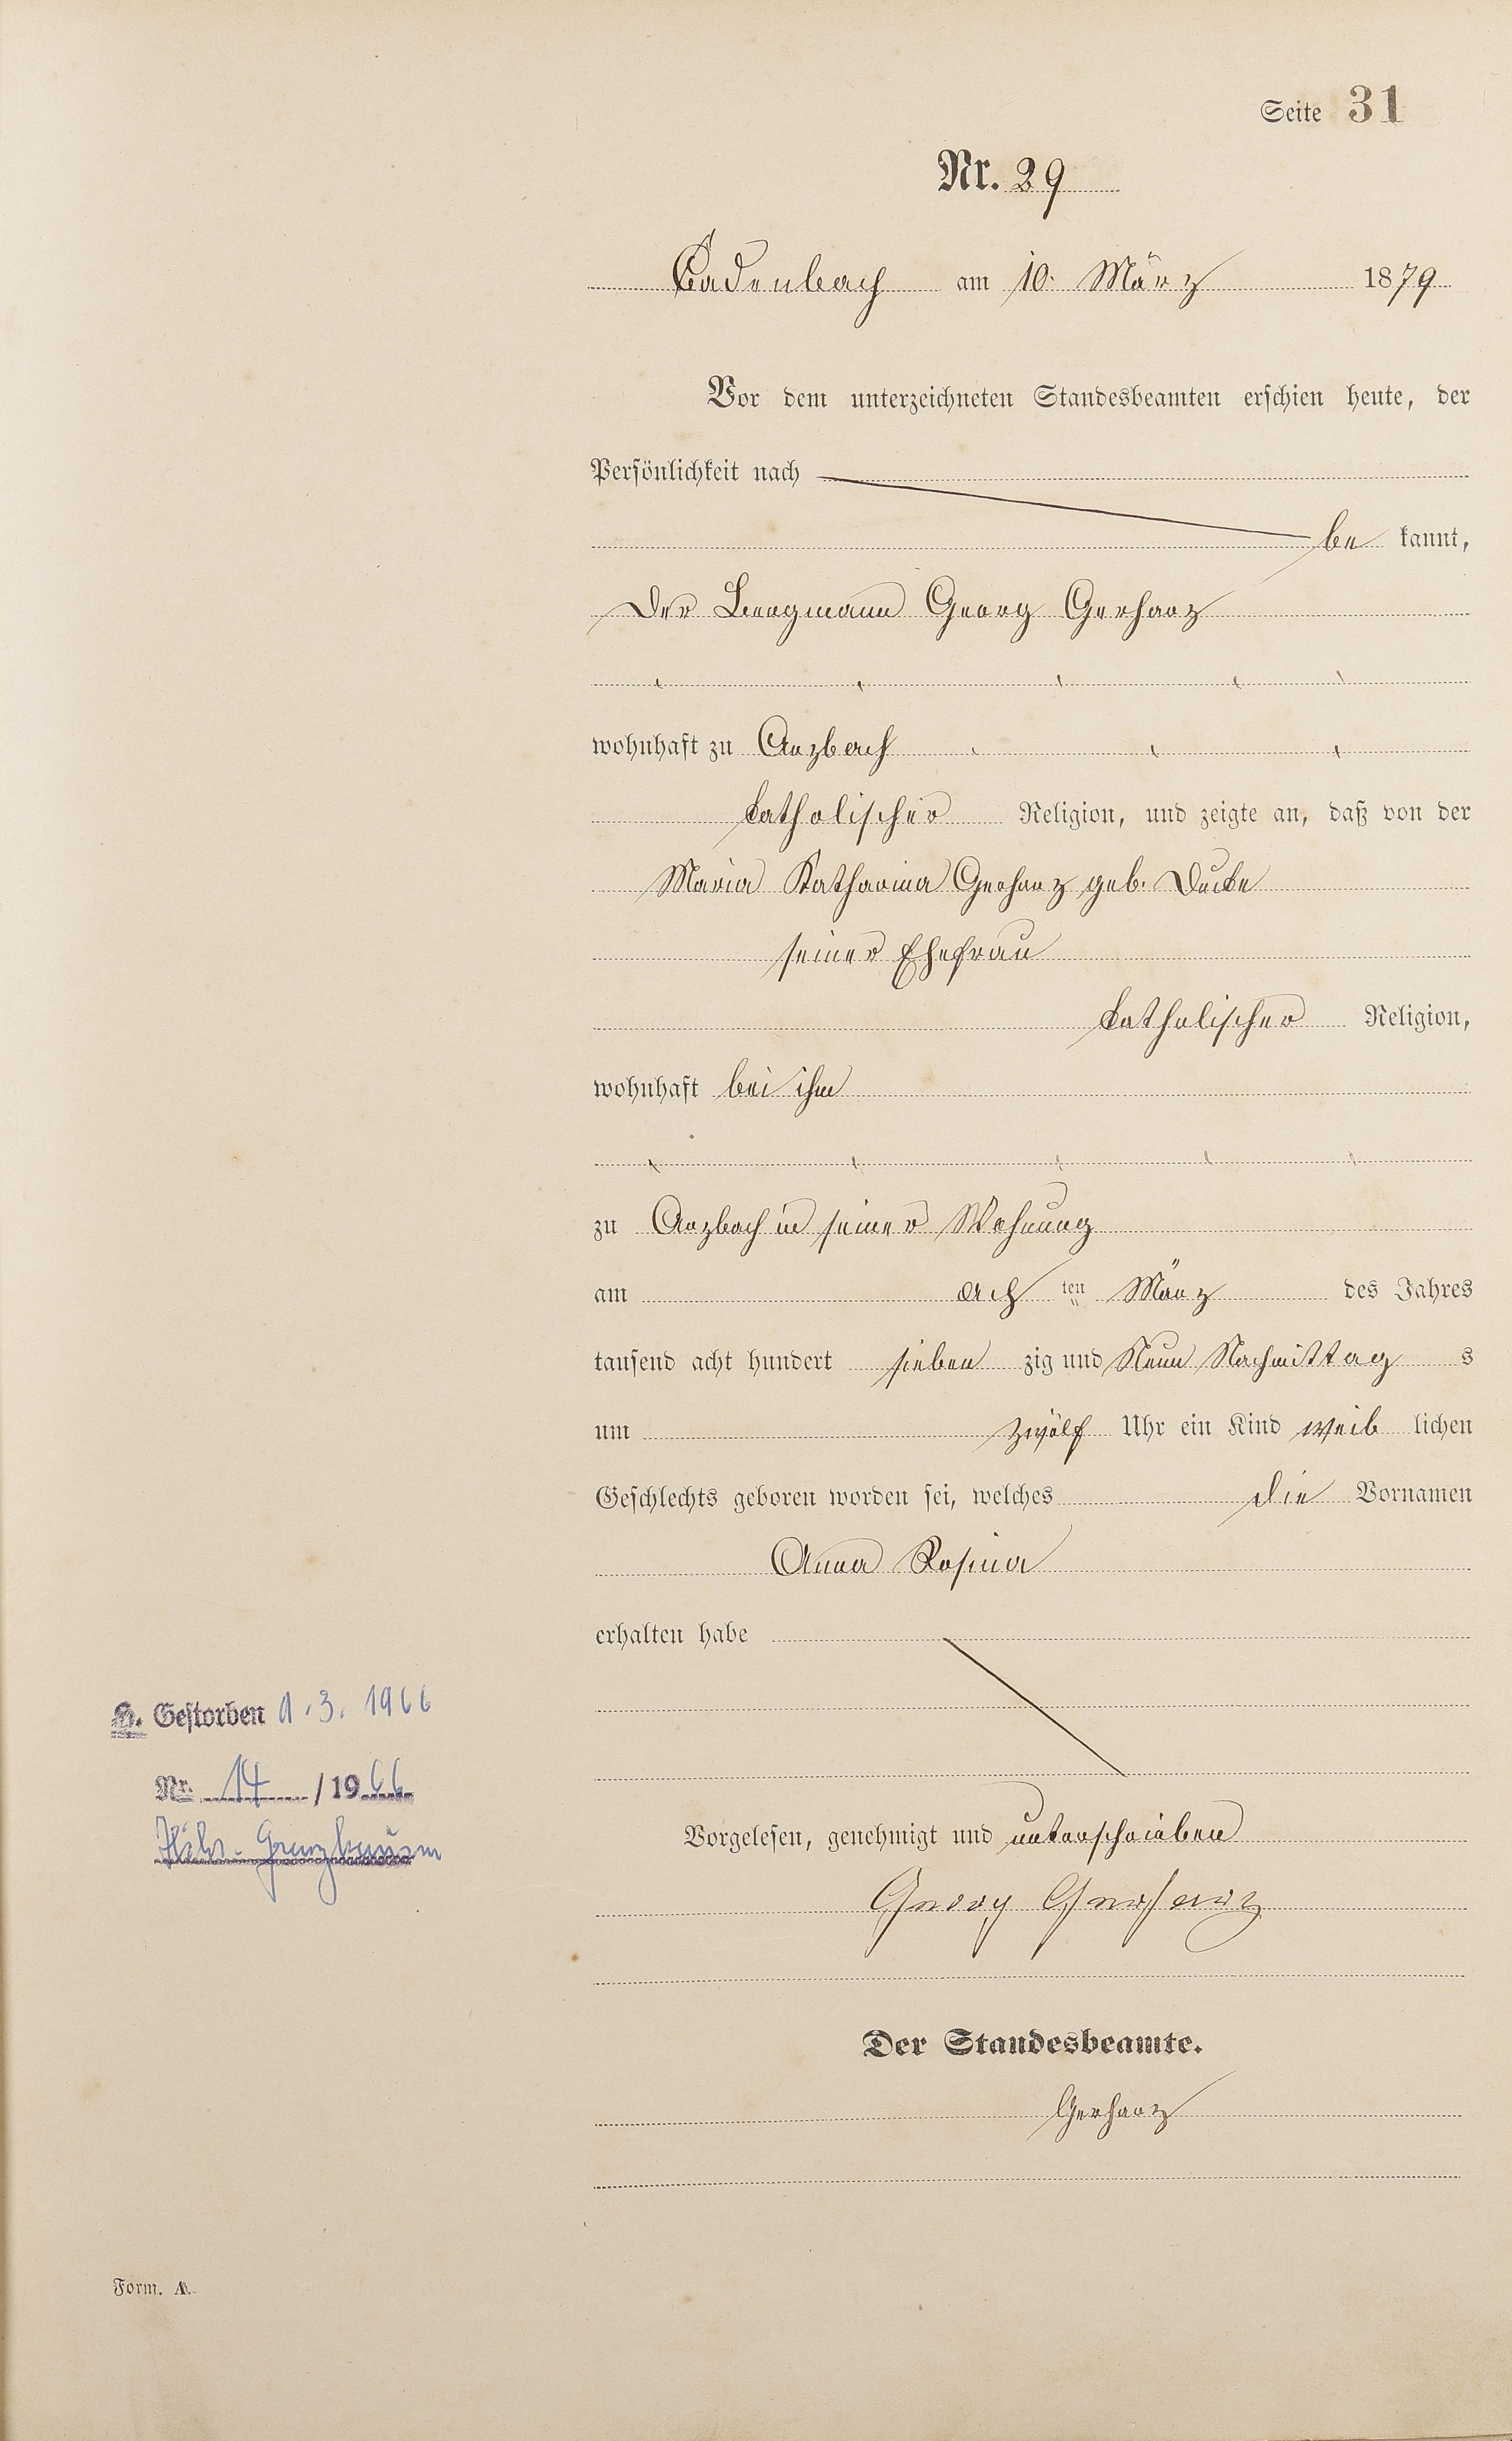 Seite 31
Nr. 29
Cadenbach am 10. März 1879
Vor dem unterzeichneten Standesbeamten erschien heute, der
Persönlichkeit nach
be kannt,
Der Bergmann Georg Gerharz
wohnhaft zu Arzbach
katholischer Religion, und zeigte an, daß von der
Maria Katharina Gerharz geb. Ducke
seiner Ehefrau
katholischer Religion,
wohnhaft bei ihm
zu Arzbach in seiner Wohnung
am ach ten März des Jahres
tausend acht hundert sieben zig und Neun Nachmittag s
um zwölf Uhr ein Kind weib lichen
Geschlechts geboren worden sei, welches die Vornamen
Anna Rosina
erhalten habe
H. Gestorben 1.3.1966
Nr. 14 / 1966
Vorgelesen, genehmigt und unterschrieben
Georg Gerharz
Der Standesbeamte.
Gerharz
Form. A.